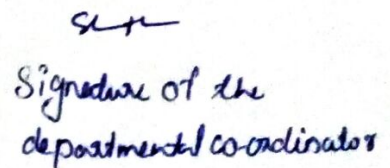 Signature of the
departmental co-ordinator